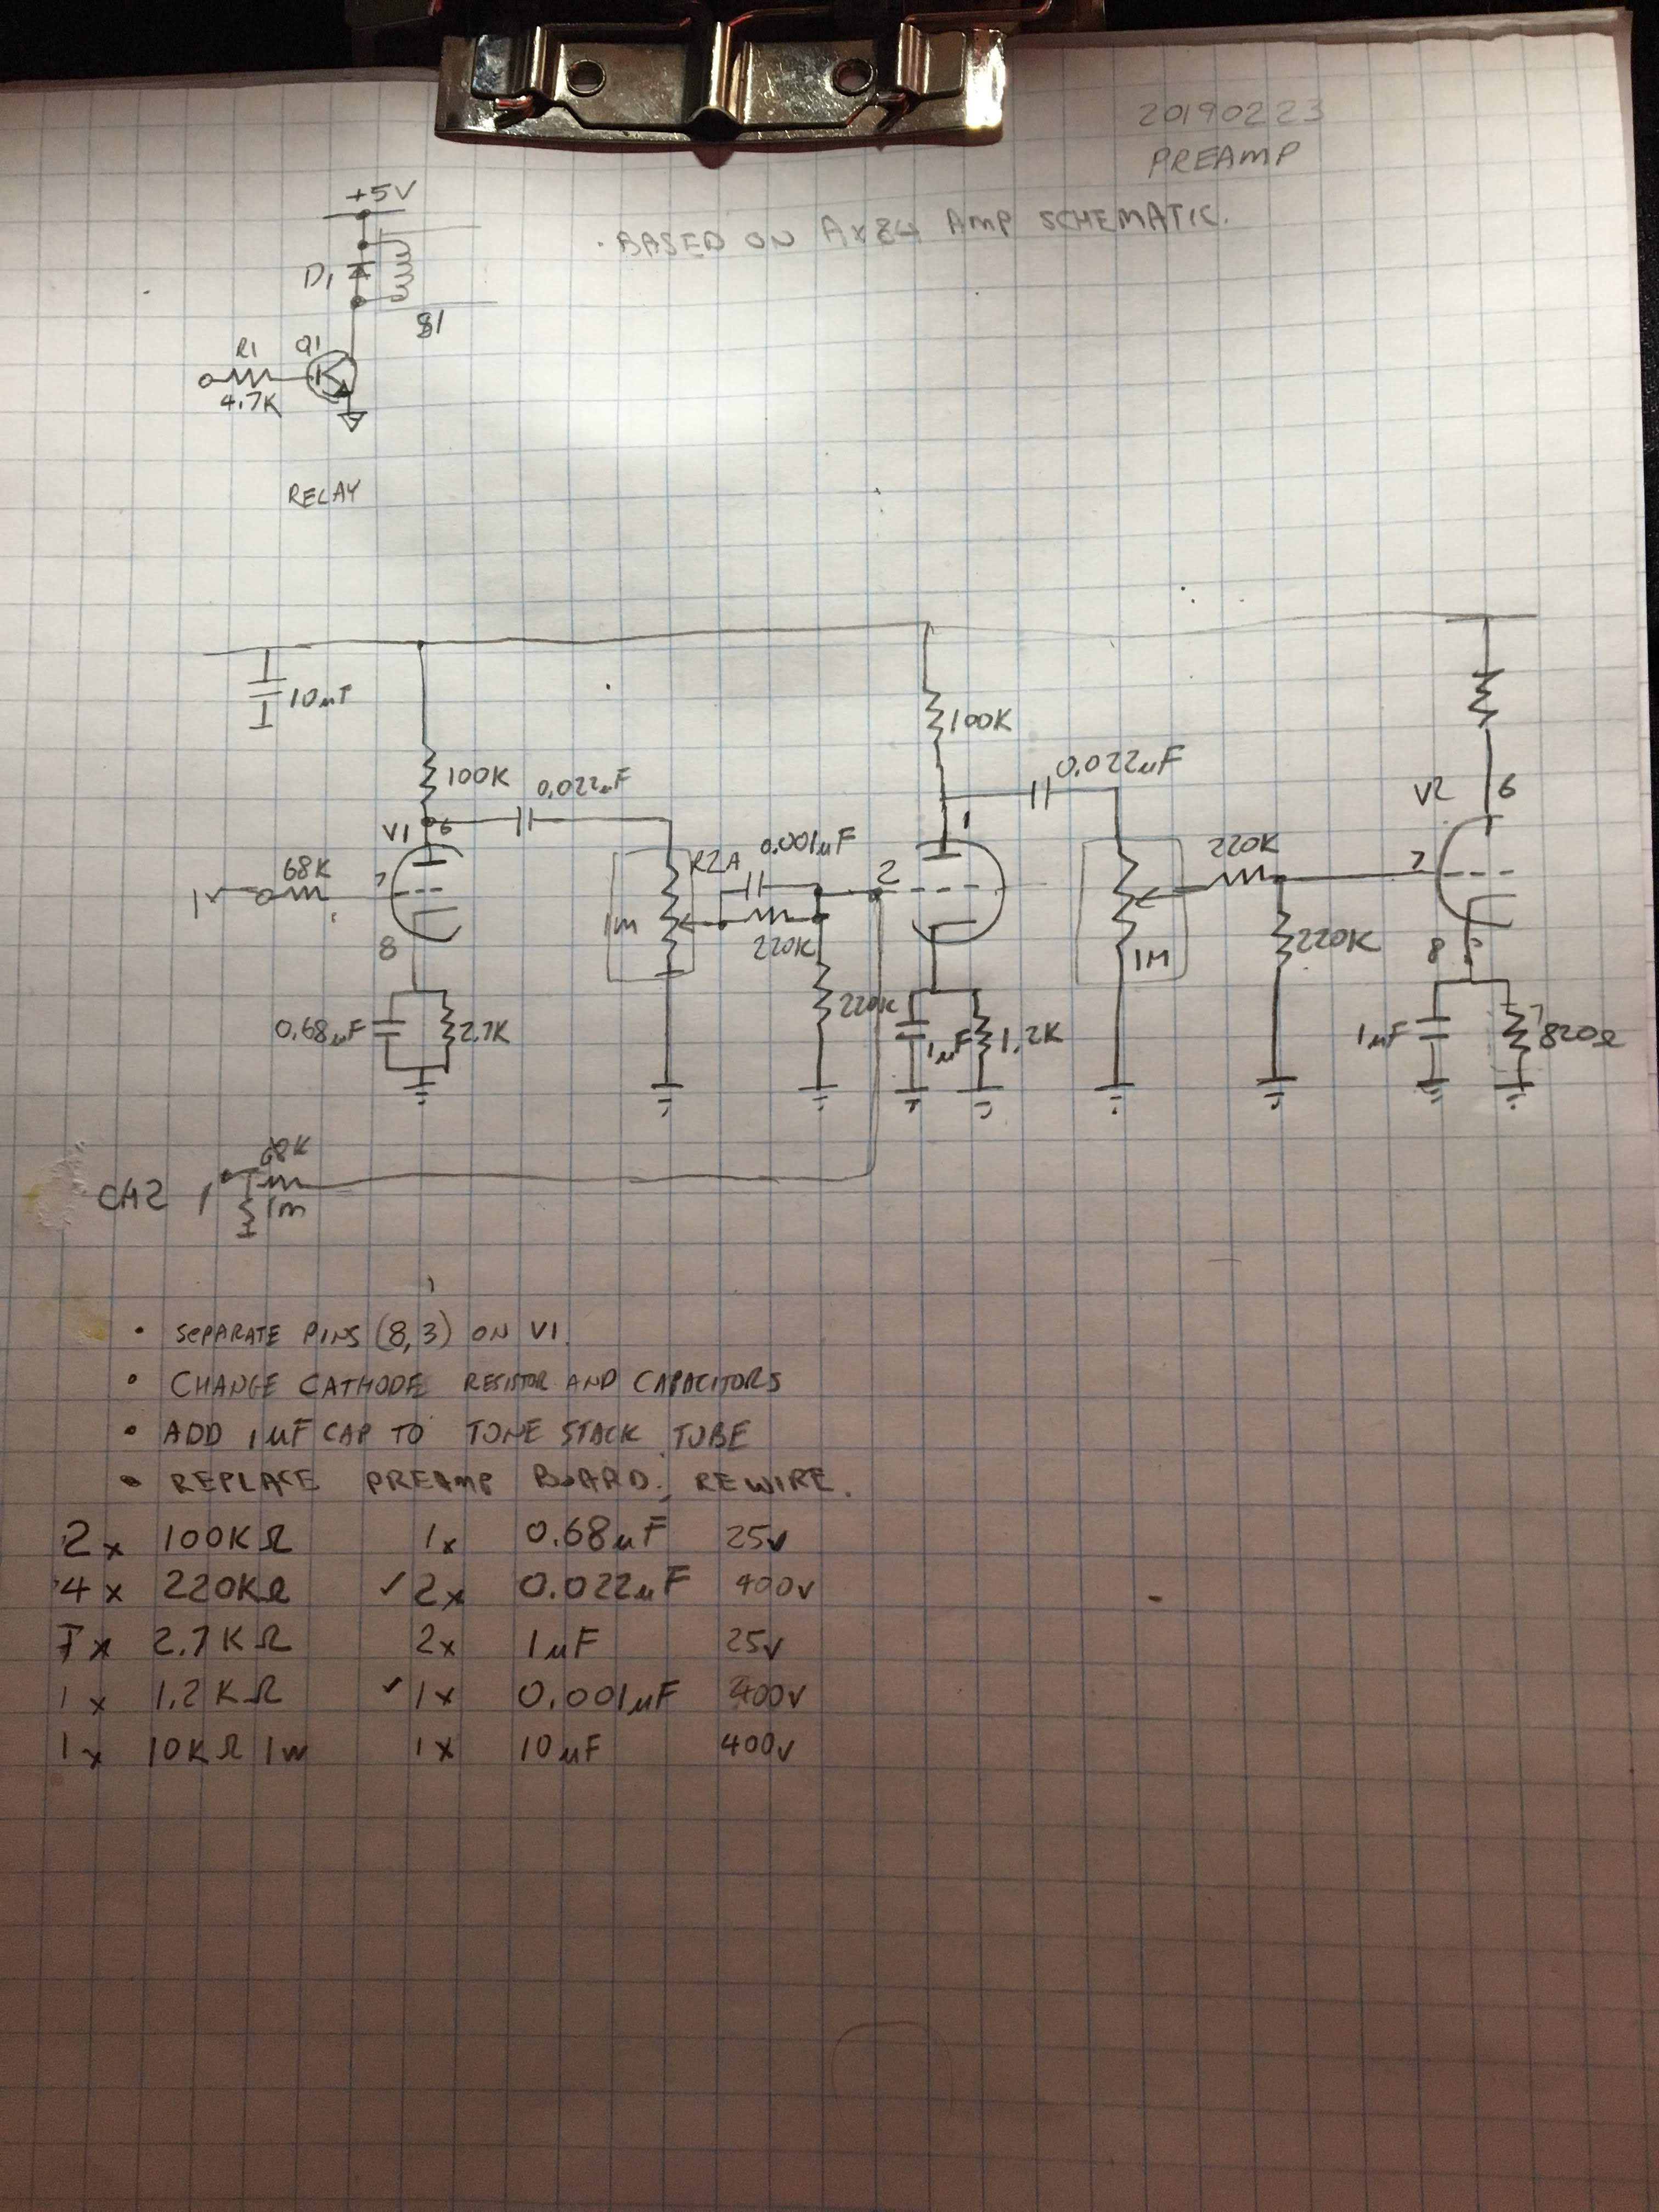 20190223
PREAMP
· BASED ON AX84 AMP SCHEMATIC.
+5V
D1
S1
R1 Q1
4.7K
RELAY
10µF
100K
0.022µF
V1 6
68K
7
8
0.68µF
2.7K
R2A
1M
0.001µF
220K
220K
2
100K
1
0.022µF
1µF
1.2K
1M
220K
220K
V2 6
7
8
1µF
820Ω
CH2
68K
1M
• SEPARATE PINS (8,3) ON V1.
• CHANGE CATHODE RESISTOR AND CAPACITORS
• ADD 1µF CAP TO TONE STACK TUBE
• REPLACE PREAMP BOARD; REWIRE.
2x 100KΩ 1x 0.68µF 25V
4x 220KΩ ✓ 2x 0.022µF 400V
1x 2.7KΩ 2x 1µF 25V
1x 1.2KΩ ✓ 1x 0.001µF 400V
1x 10KΩ 1W 1x 10µF 400V